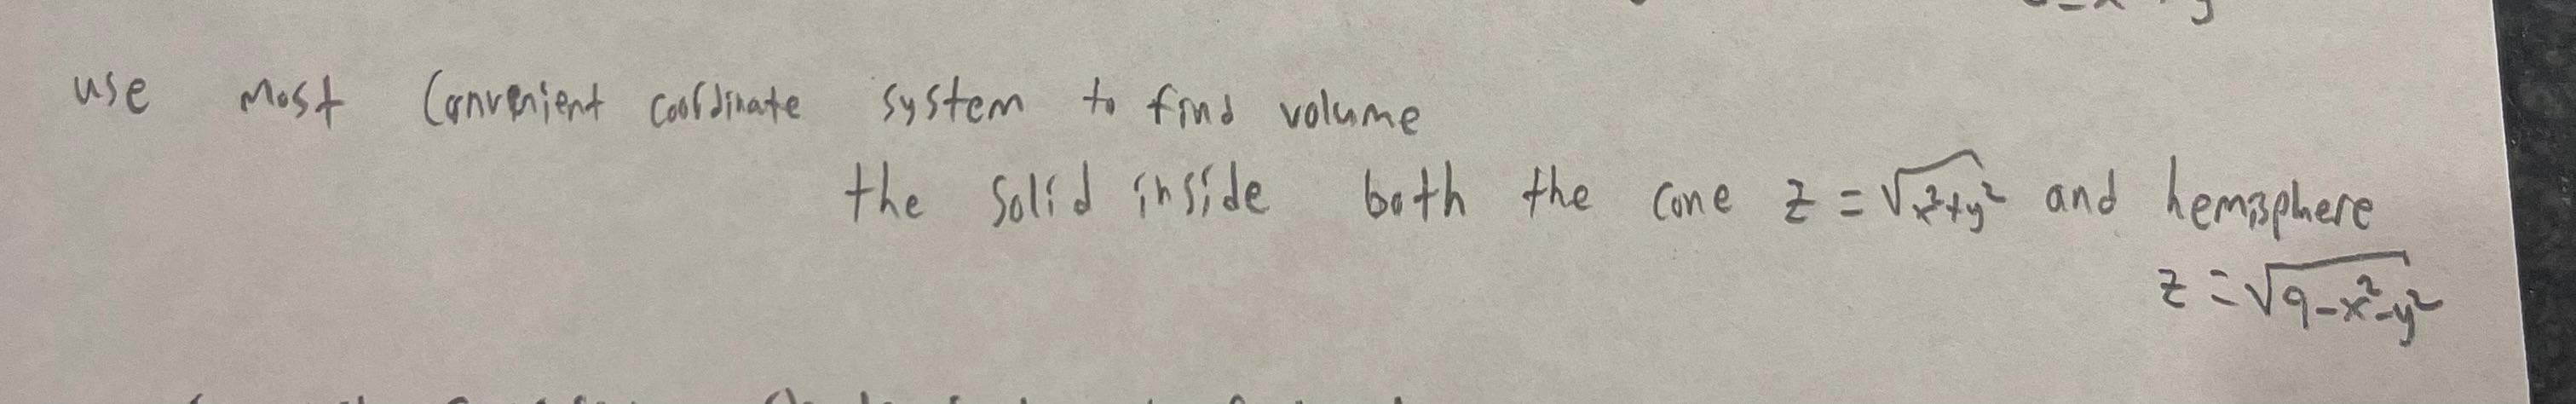 use most convenient coordinate system to find volume
the solid inside both the cone z = √x²+y² and hemisphere
z = √9-x²-y²